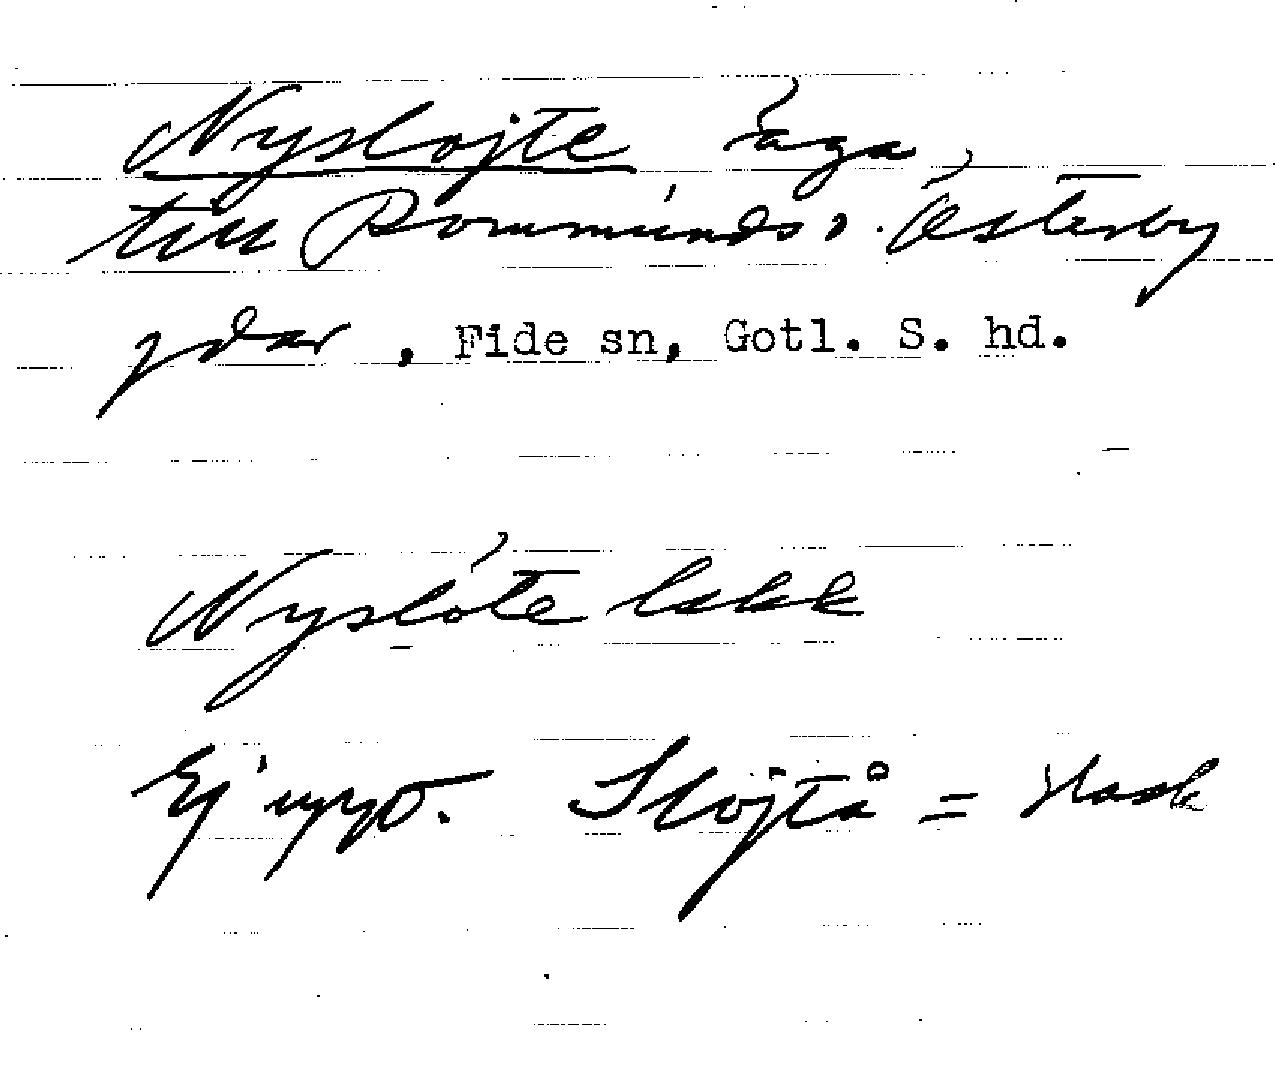 Nyslojte äga,
till Rommunds i Österby
gdar, Fide sn, Gotl. S. hd.
Nyslöte
Ej nyo. Slöjtå = slask